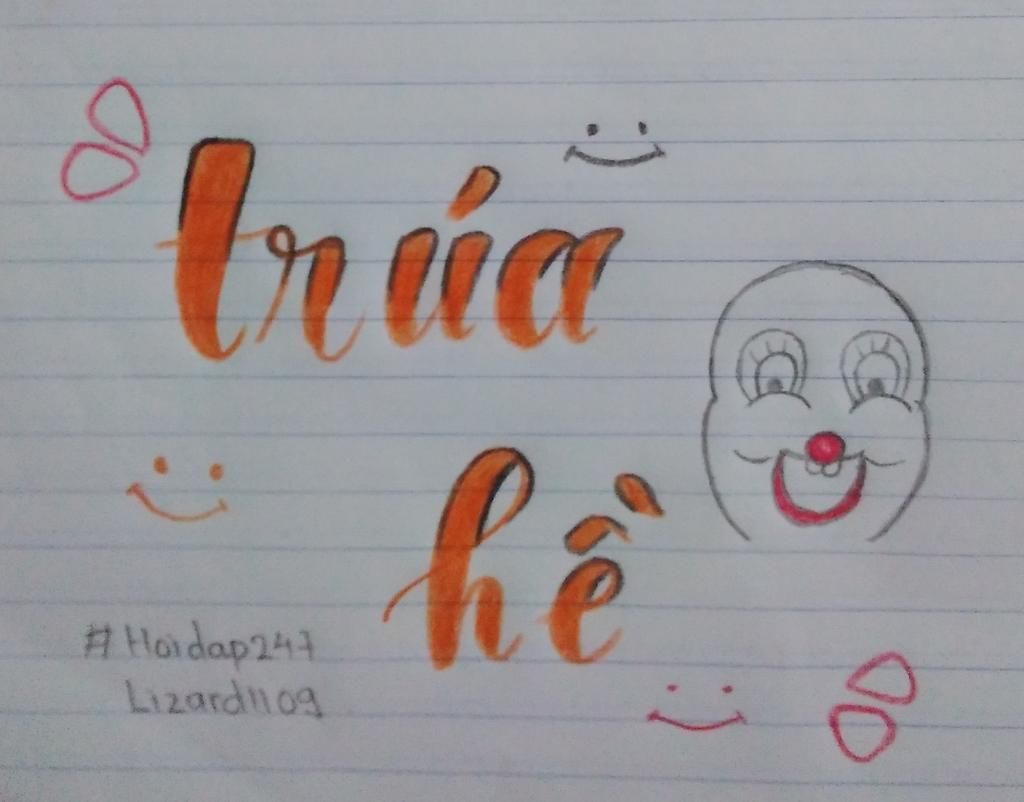 trúa
hề
#Hoidap247
Lizard1109